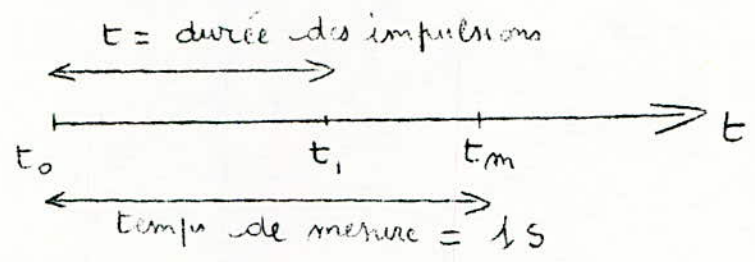 t = durée des impulsions
t
t₀ t₁ tm
temps de mesure = 1 s